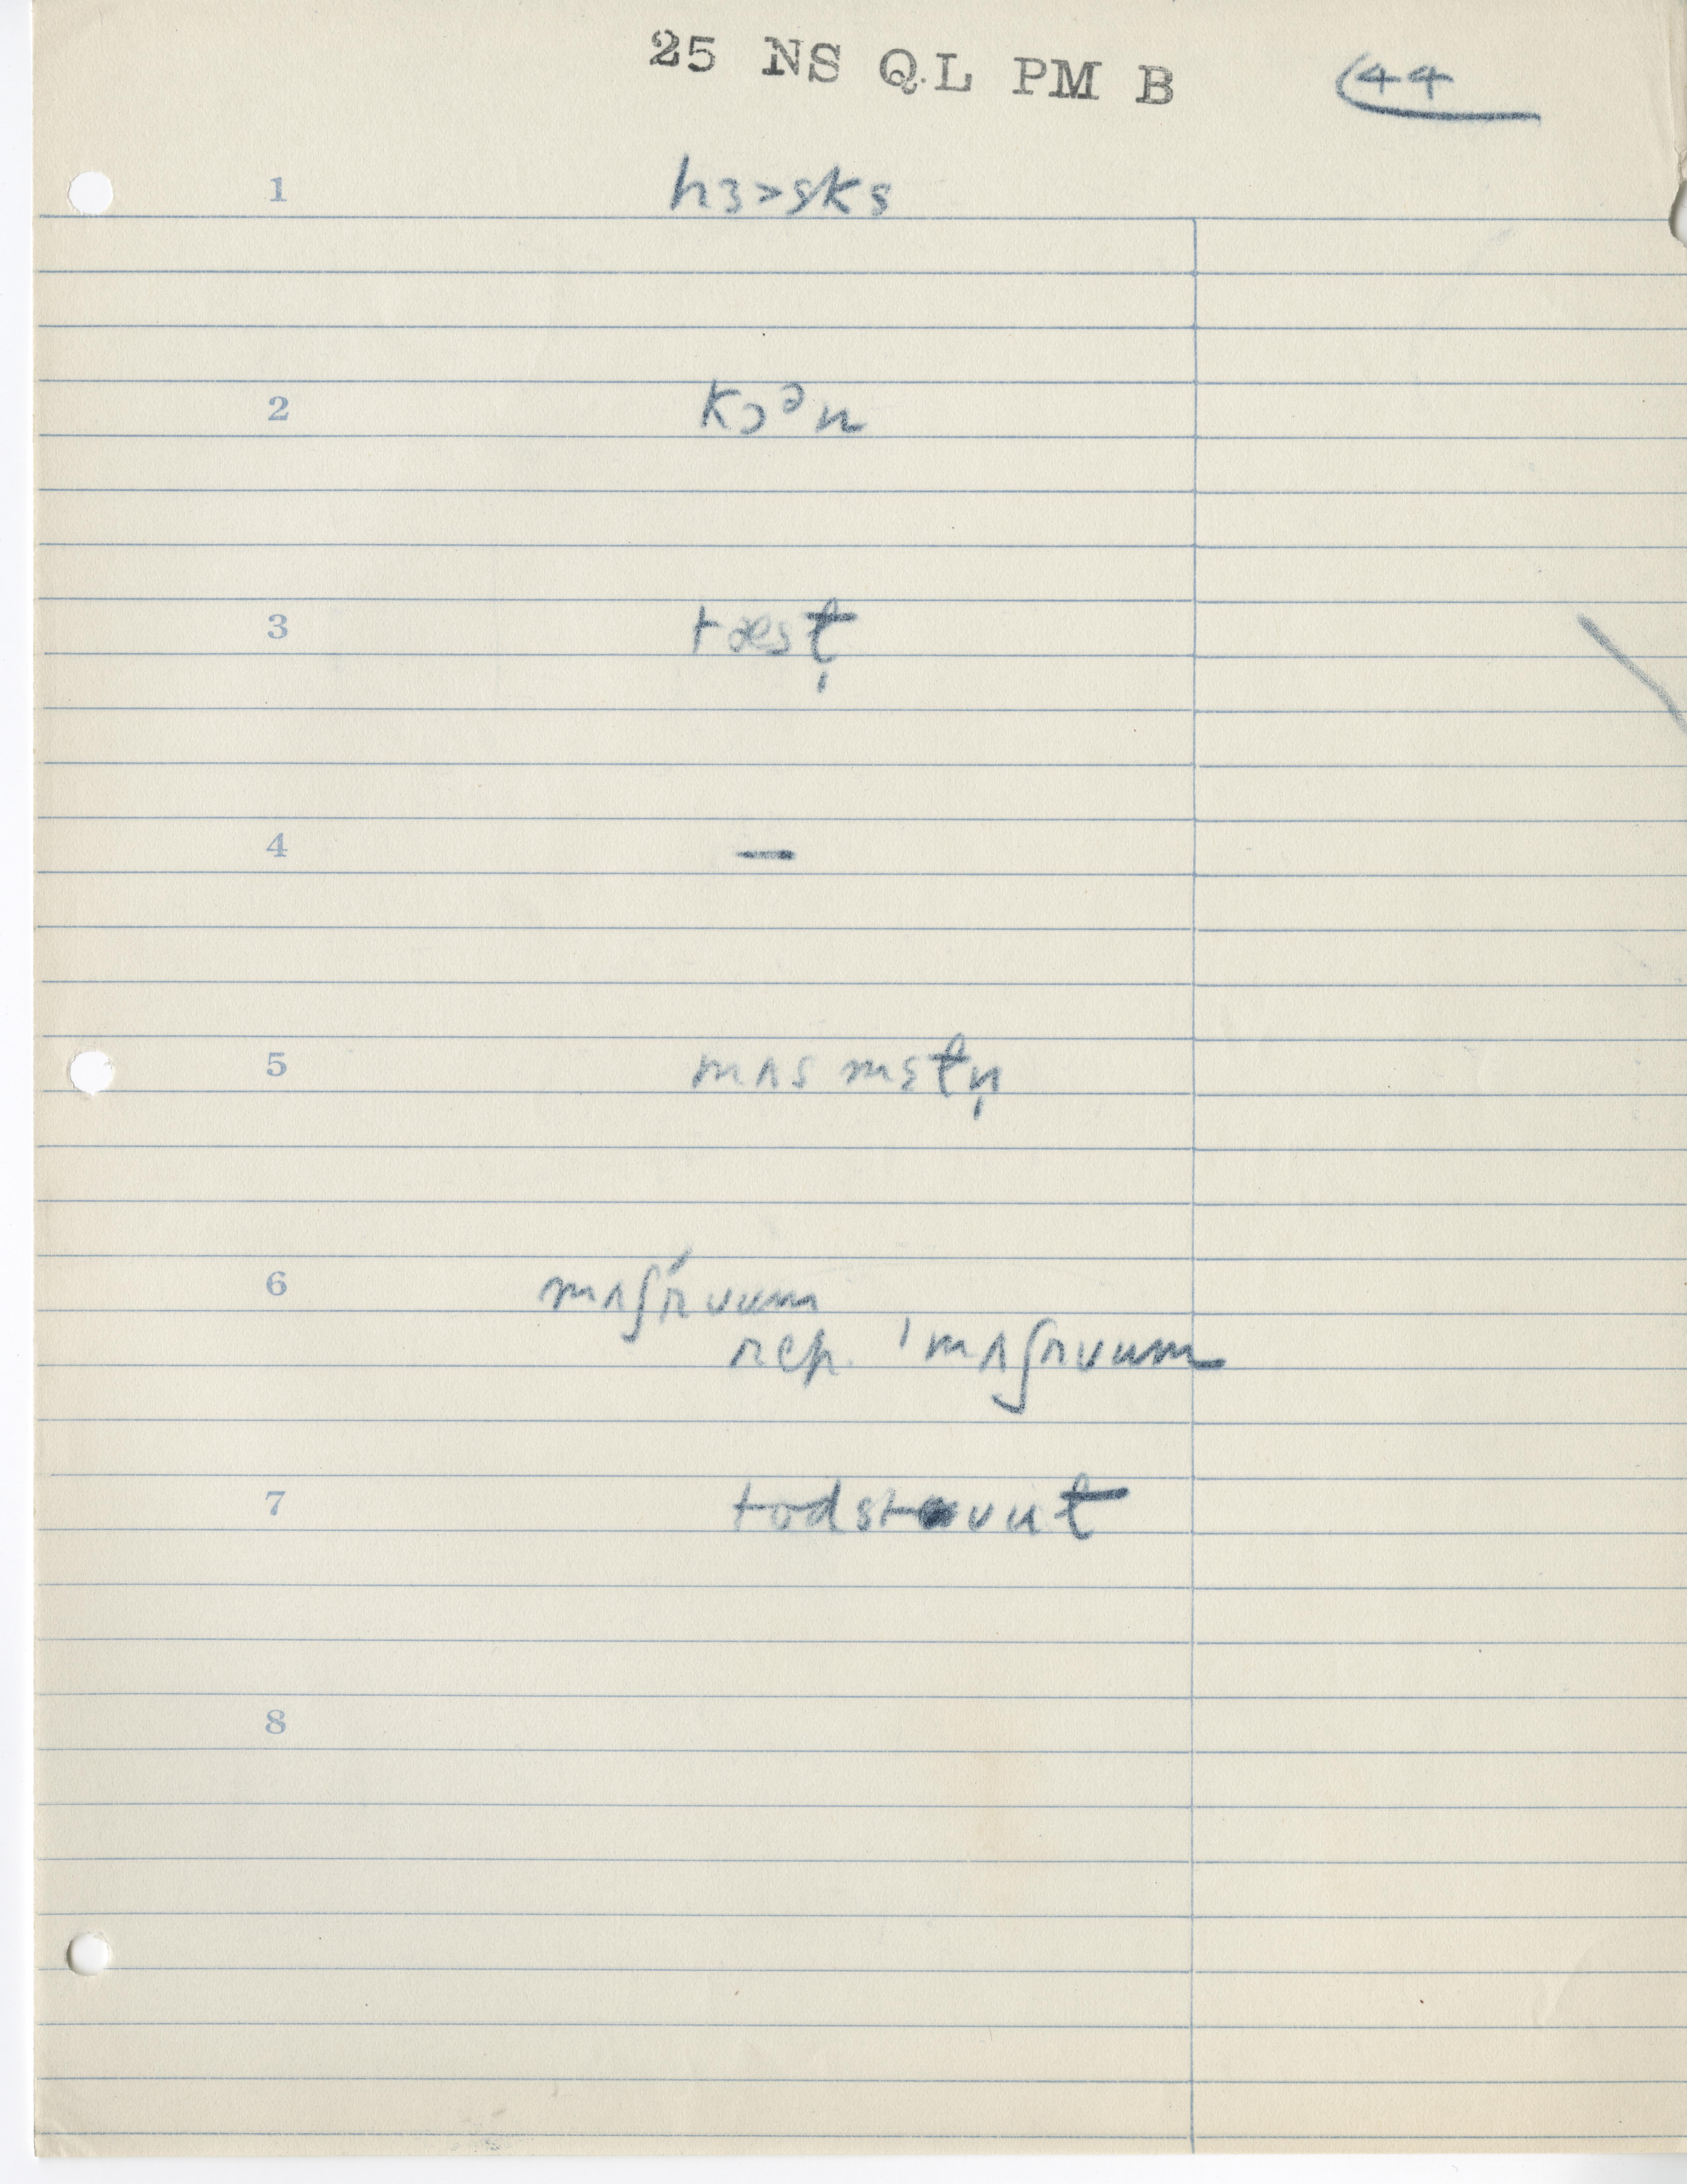 25 NS QL PM B 44
1 hɜ>sks
2 kɔᵊn
3 tæst̩
4 —
5 mʌs mɛtn̩
6 mʌʃŕuum
rep. ˈmʌʃruum
7 todstuut
8